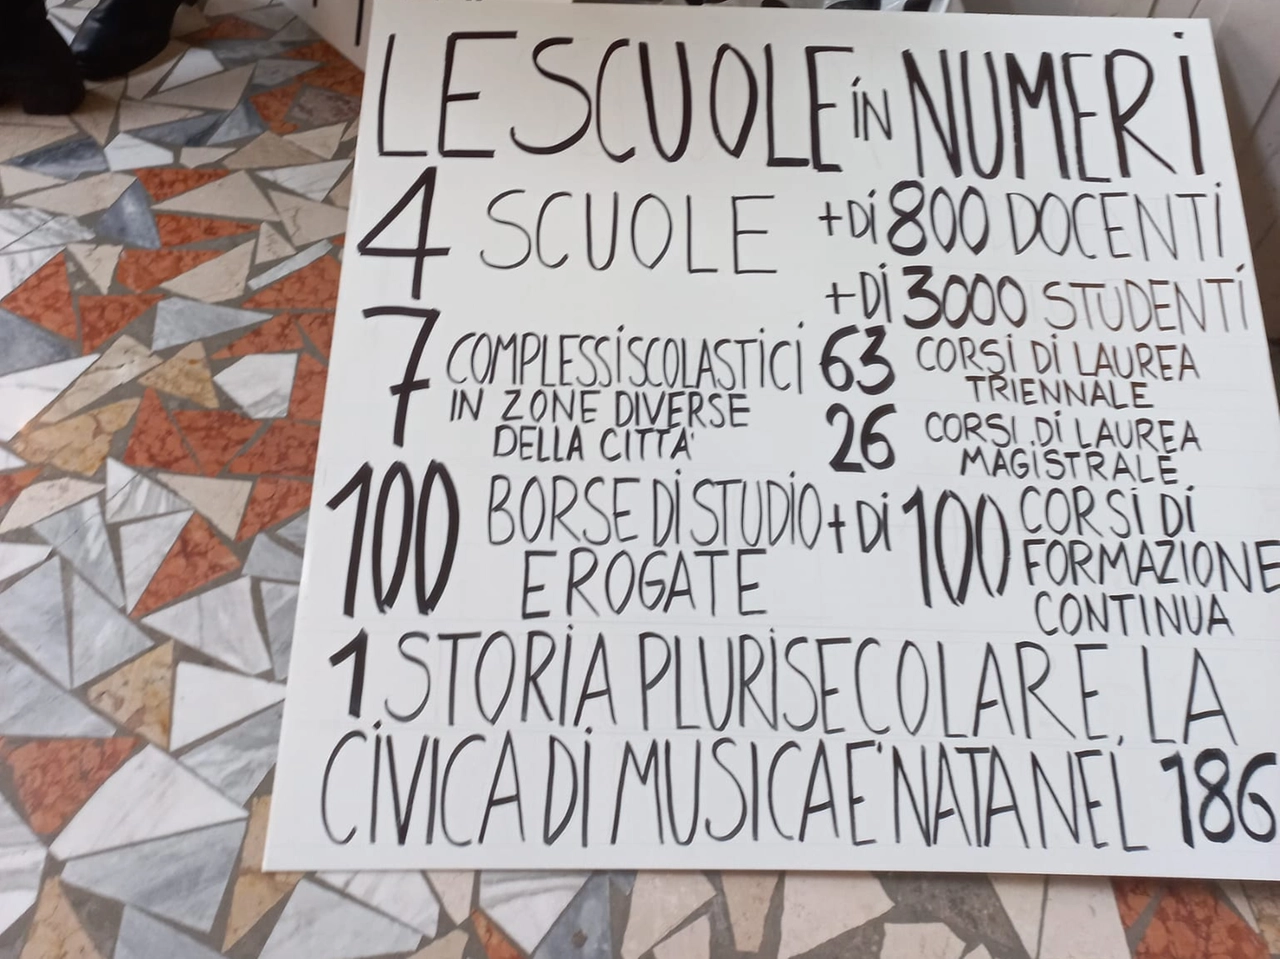 LE SCUOLE iN NUMERi
4 SCUOLE
+Di 800 DOCENTi
+Di 3000 STUDENTi
7 COMPLESSi SCOLASTiCi
IN ZONE DIVERSE
DELLA CITTA'
63 CORSi Di LAUREA
TRIENNALE
26 CORSI Di LAUREA
MAGISTRALE
100 BORSE Di STUDiO
EROGATE
+ Di 100 CORSi Di
FORMAZIONE
CONTINUA
1 STORiA PLURiSECOLARE, LA
CiViCA Di MUSICA E' NATA NEL 186